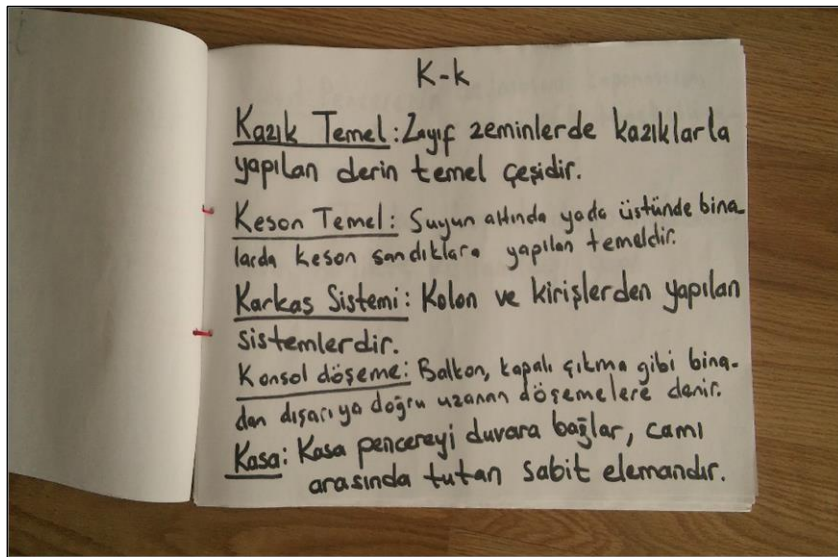 K-k
Kazık Temel: Zayıf zeminlerde kazıklarla
yapılan derin temel çeşidir.
Keson Temel: Suyun altında yada üstünde bina-
larda keson sandıklara yapılan temeldir.
Karkas Sistemi: Kolon ve kirişlerden yapılan
sistemlerdir.
Konsol döşeme: Balkon, kapalı çıkma gibi bina-
dan dışarıya doğru uzanan döşemelere denir.
Kasa: Kasa pencereyi duvara bağlar, camı
arasında tutan sabit elemandır.